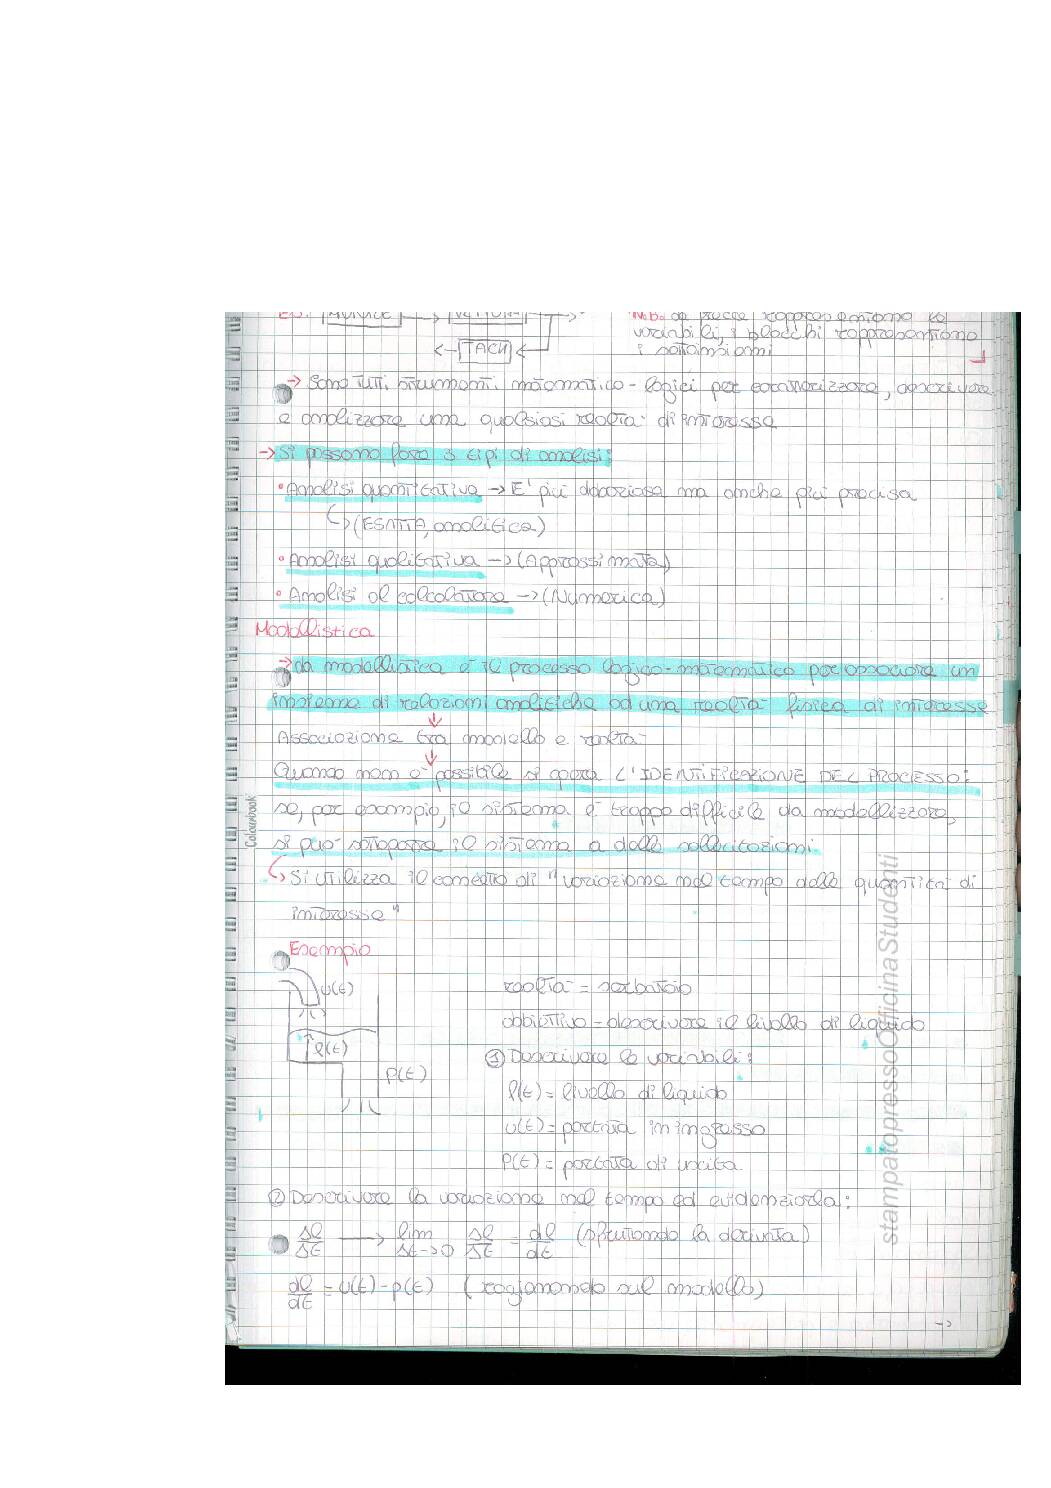 ES:
N.B. Le frecce rappresentano le
variabili, i blocchi rappresentano
i sottoinsiemi
TACH
→ Sono tutti strumenti matematico-logici per caratterizzare, descrivere
e analizzare una qualsiasi realtà di interesse
→ Si possono fare 3 tipi di analisi:
• Analisi quantitativa → E' più dispendiosa ma anche più precisa
↳ (ESATTA, analitica)
• Analisi qualitativa → (Approssimata)
• Analisi al calcolatore → (Numerica)
Modellistica
→ La modellistica è il processo logico-matematico per associare un
insieme di relazioni analitiche ad una realtà fisica di interesse
Associazione tra modello e realtà
Quando non è possibile si opera L'IDENTIFICAZIONE DEL PROCESSO:
se, per esempio, il sistema è troppo difficile da modellizzare,
si può sottoporre il sistema a delle sollecitazioni.
Colourbook
↳ Si utilizza il concetto di "variazione nel tempo delle quantità di
interesse"
Esempio
u(t)
l(t)
p(t)
realtà = serbatoio
obbiettivo - descrivere il livello di liquido
① Descrivere le variabili:
l(t) = livello di liquido
u(t) = portata in ingresso
p(t) = portata di uscita
② Descrivere la variazione nel tempo ed evidenziarla:
Δl/Δt → lim Δt→0 Δl/Δt = dl/dt (sfruttando la derivata)
dl/dt = u(t) - p(t) (ragionando sul modello)
→
stampatopressoOfficinaStudenti